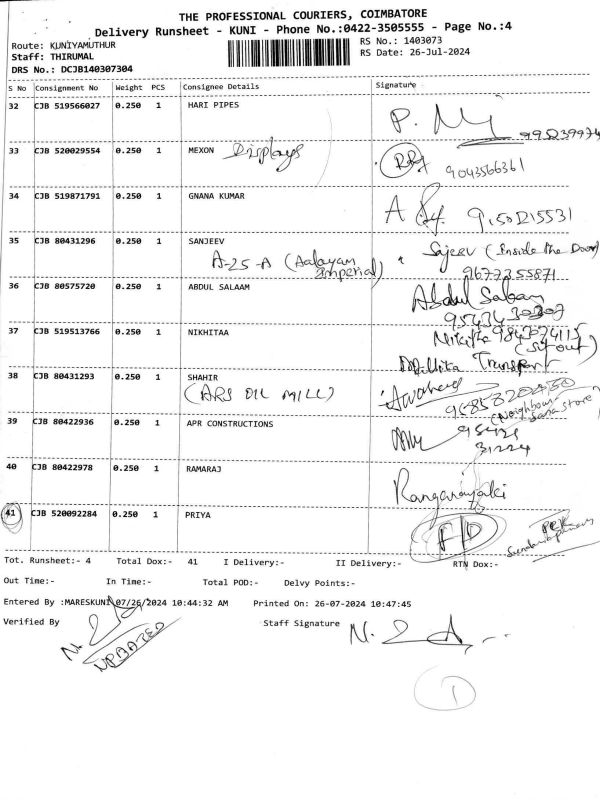 THE PROFESSIONAL COURIERS, COIMBATORE
Delivery Runsheet - KUNI - Phone No.:0422-3505555 - Page No.:4
Route: KUNIYAMUTHUR
RS No.: 1403073
Staff: THIRUMAL
RS Date: 26-Jul-2024
DRS No.: DCJB140307304
S No Consignment No Weight PCS Consignee Details Signature
32 CJB 519566027 0.250 1 HARI PIPES
33 CJB 520029554 0.250 1 MEXON Displays
9043566361
34 CJB 519871791 0.250 1 GNANA KUMAR
35 CJB 80431296 0.250 1 SANJEEV Sajeev (Inside the Door)
A-25-A (Aalayam Imperial) 9677355871
36 CJB 80575720 0.250 1 ABDUL SALAAM Abdul Salaam
37 CJB 519513766 0.250 1 NIKHITAA Nikitha 9843074115
(Sit out)
Transport
38 CJB 80431293 0.250 1 SHAHIR
(ARS OIL MILL)
(Neighbour Sana Store)
39 CJB 80422936 0.250 1 APR CONSTRUCTIONS
40 CJB 80422978 0.250 1 RAMARAJ Ranganayaki
41 CJB 520092284 0.250 1 PRIYA F/D
Tot. Runsheet:- 4 Total Dox:- 41 I Delivery:- II Delivery:- RTN Dox:-
Out Time:- In Time:- Total POD:- Delvy Points:-
Entered By :MARESKUNI 07/26/2024 10:44:32 AM Printed On: 26-07-2024 10:47:45
Verified By Staff Signature
UPDATED
1